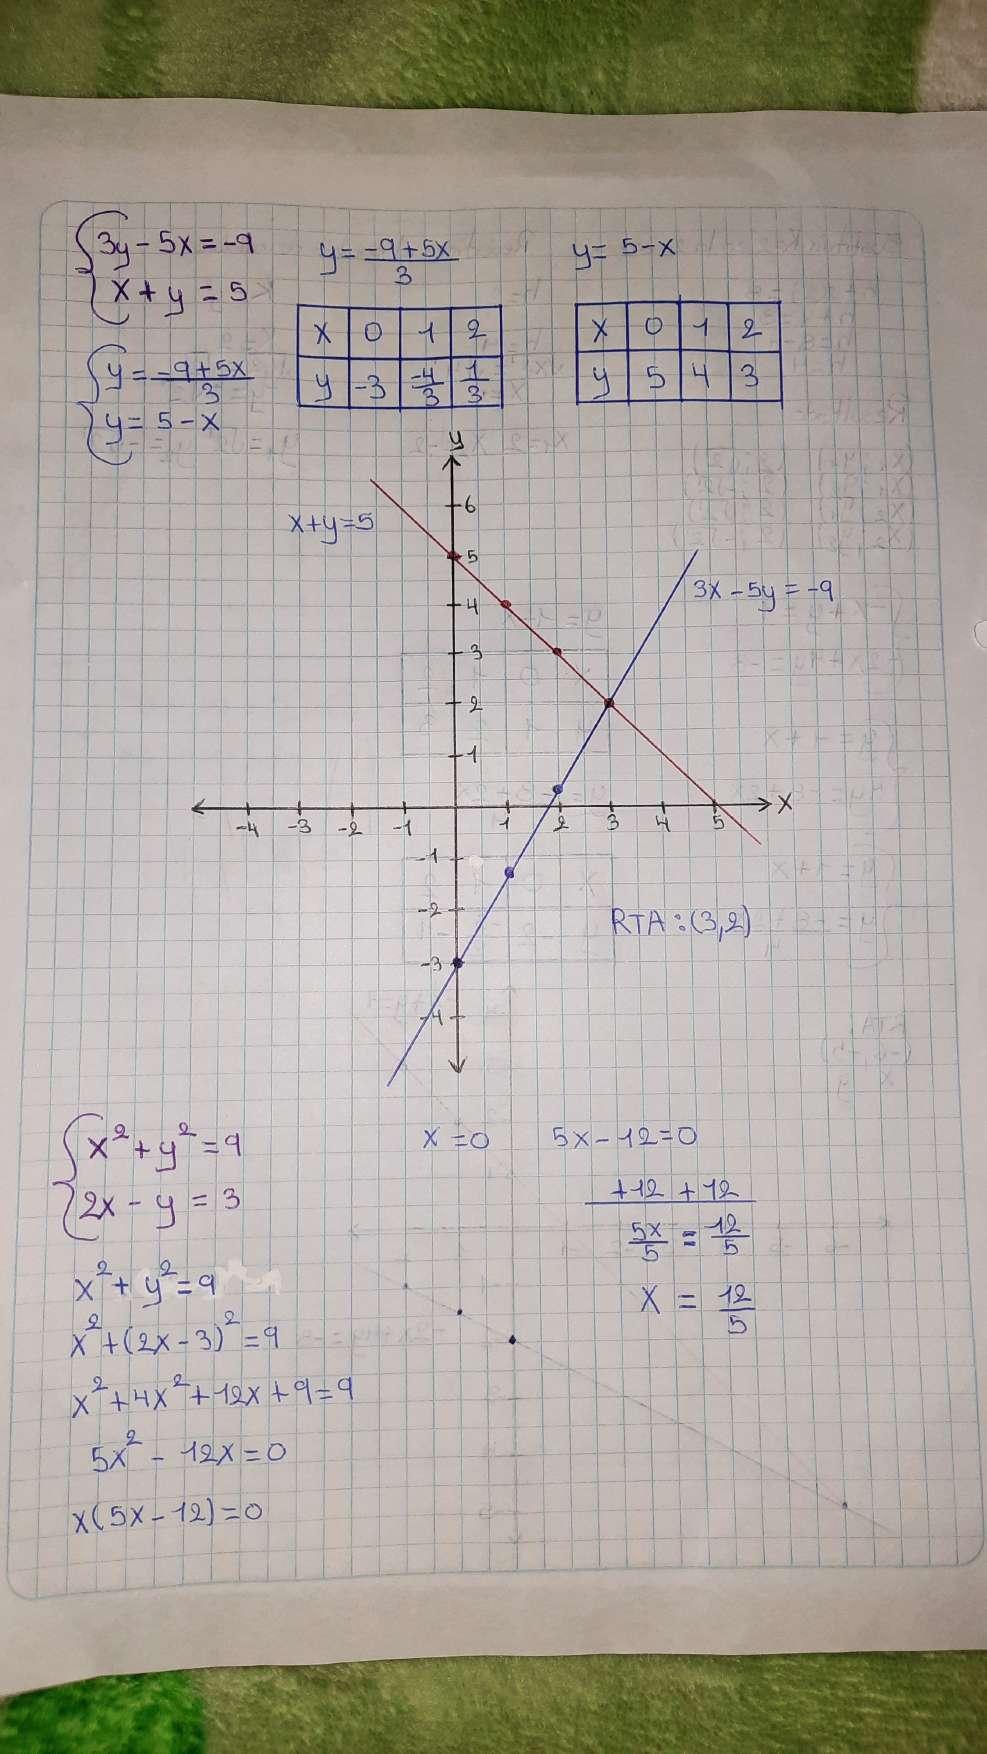 3y - 5x = -9
x + y = 5
y = -9+5x / 3
y = 5 - x
y = -9+5x / 3
x 0 1 2
y -3 -4/3 1/3
y = 5 - x
x 0 1 2
y 5 4 3
y
x+y=5
6
5
4
3
2
1
3x - 5y = -9
-4 -3 -2 -1 1 2 3 4 5 x
-1
-2
-3
-4
RTA : (3,2)
x² + y² = 9
2x - y = 3
x² + y² = 9
x² + (2x - 3)² = 9
x² + 4x² + 12x + 9 = 9
5x² - 12x = 0
x(5x - 12) = 0
x = 0
5x - 12 = 0
+12 +12
5x/5 = 12/5
x = 12/5